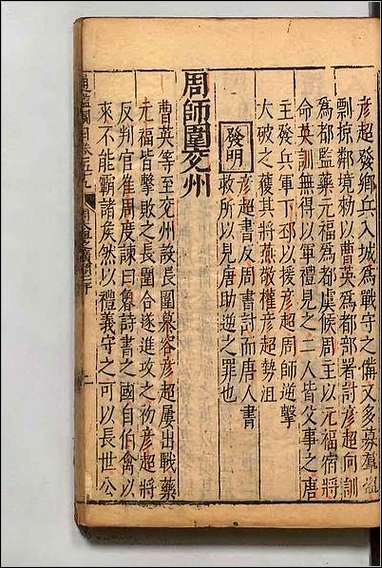 彦超發鄉兵入城爲戰守之備又多募羣盜
剽掠鄰境勅以曹英爲都部署討彦超向訓
爲都監藥元福爲都虞候周主以元福宿將
命英訓無得以軍禮見之二人皆父事之唐
主發兵軍下邳以援彦超周師逆擊
大破之獲其將燕敬權彦超勢沮
發明
彦超書反周書討而唐人書
救所以見唐助逆之罪也
周師圍兖州
曹英等至兖州設長圍慕容彦超屢出戰藥
元福皆擊敗之長圍合遂進攻之初彦超將
反判官崔周度諫曰魯詩書之國自伯禽以
來不能霸諸矦然以禮義守之可以長世公